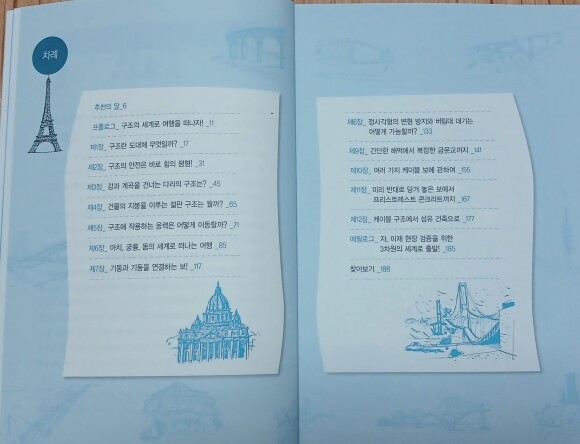 차례
추천의 말_6
프롤로그_ 구조의 세계로 여행을 떠나자! _11
제1장_ 구조란 도대체 무엇일까? _17
제2장_ 구조의 안전은 바로 힘의 평형! _31
제3장_ 강과 계곡을 건너는 다리의 구조는? _45
제4장_ 건물의 지붕을 이루는 절판 구조는 뭘까? _65
제5장_ 구조에 작용하는 응력은 어떻게 이동할까? _71
제6장_ 아치, 궁륭, 돔의 세계로 떠나는 여행 _85
제7장_ 기둥과 기둥을 연결하는 보! _117
제8장_ 정사각형의 변형 방지와 버팀대 대기는
어떻게 가능할까? _133
제9장_ 간단한 해먹에서 복잡한 금문교까지 _141
제10장_ 여러 가지 케이블 보에 관하여 _155
제11장_ 미리 반대로 당겨 놓은 보에서
프리스트레스트 콘크리트까지 _167
제12장_ 케이블 구조에서 섬유 건축으로 _177
에필로그_ 자, 이제 현장 검증을 위한
3차원의 세계로 출발! _185
찾아보기 _188